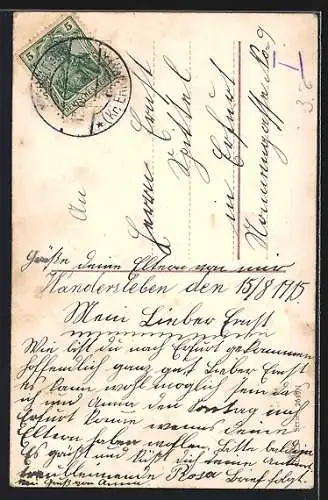 5
An
Herrn Ernst
Spittel
in Erfurt
No 9
I
Grüße deine Eltern von mir
Wandersleben den 15/8 1715.
Mein Lieber Ernst
Wie bist du nach Erfurt gekommen
hoffentlich ganz gut Lieber Ernst
es kann wohl möglich sein das
ich und Anna den Sontag nach
Erfurt komme wenns Deine
Eltern haben wollen, bitte baldige
Es grüßt und küßt dich deine
Rosa Brief folgt.
ein Gruß von Anna